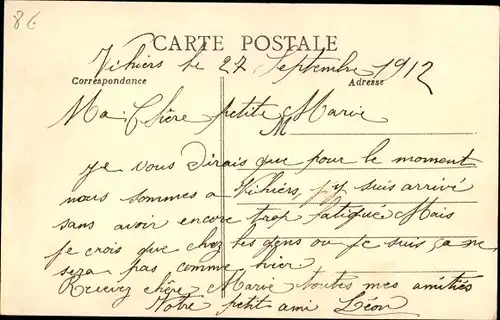 8€
CARTE POSTALE
Vihiers le 27 Septembre 1912
Correspondance Adresse
Ma Chère petite Marie
M
Je vous dirais que pour le moment
nous sommes a Vihiers, j'y suis arrivé
sans avoir encore trop fatigué Mais
je crois que chez les gens ou je suis ça ne
sera pas comme hier
Recevez chère Marie toutes mes amitiés
Votre petit ami Léon